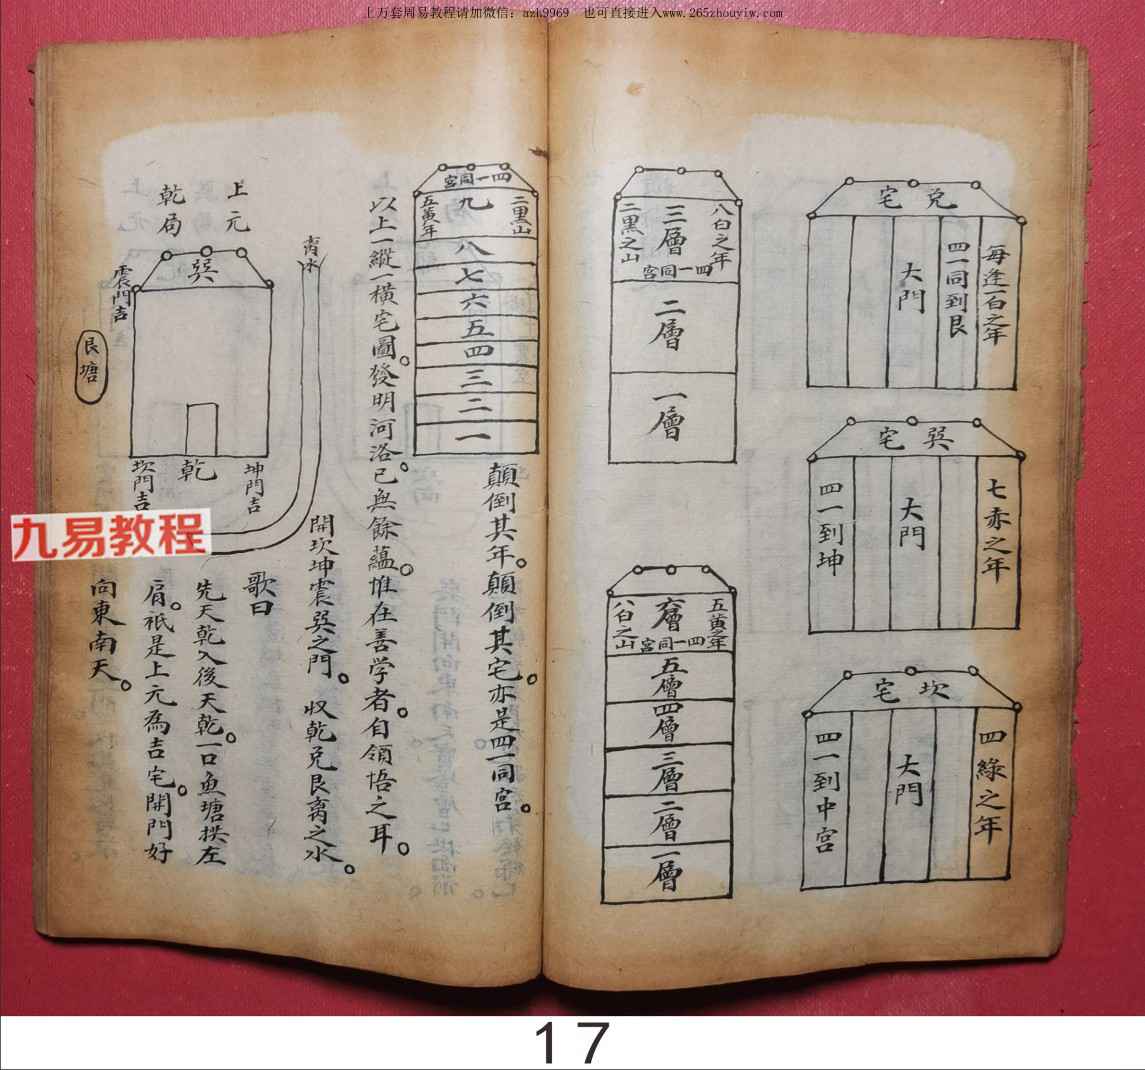 上万套周易教程请加微信：azh9969　也可直接进入www.265zhouyiw.com
兌宅
每逢一白之年
四一同到艮
大門
巽宅
七赤之年
大門
四一到坤
坎宅
四綠之年
大門
四一到中宮
八白之年
三層
四一同宮
二黑之山
二層
一層
五黃之年
六層
四一同宮
八白之山
五層
四層
三層
二層
一層
四一同宮
二黑山
九
五黃年
八
七
六
五
四
三
二
一
顛倒其年。顛倒其宅。亦是四一同宮。
以上一縱一橫宅圖。發明河洛。已無餘蘊。惟在善学者。自領悟之耳。
離水
上元
乾局
巽
震門吉
艮塘
坤門吉
乾
坎門吉
開坎坤震巽之門。收乾兌艮离之水。
歌曰
先天乾入後天乾。一口魚塘拱左
肩。祇是上元為吉宅。開門好
向東南天。
九易教程
17